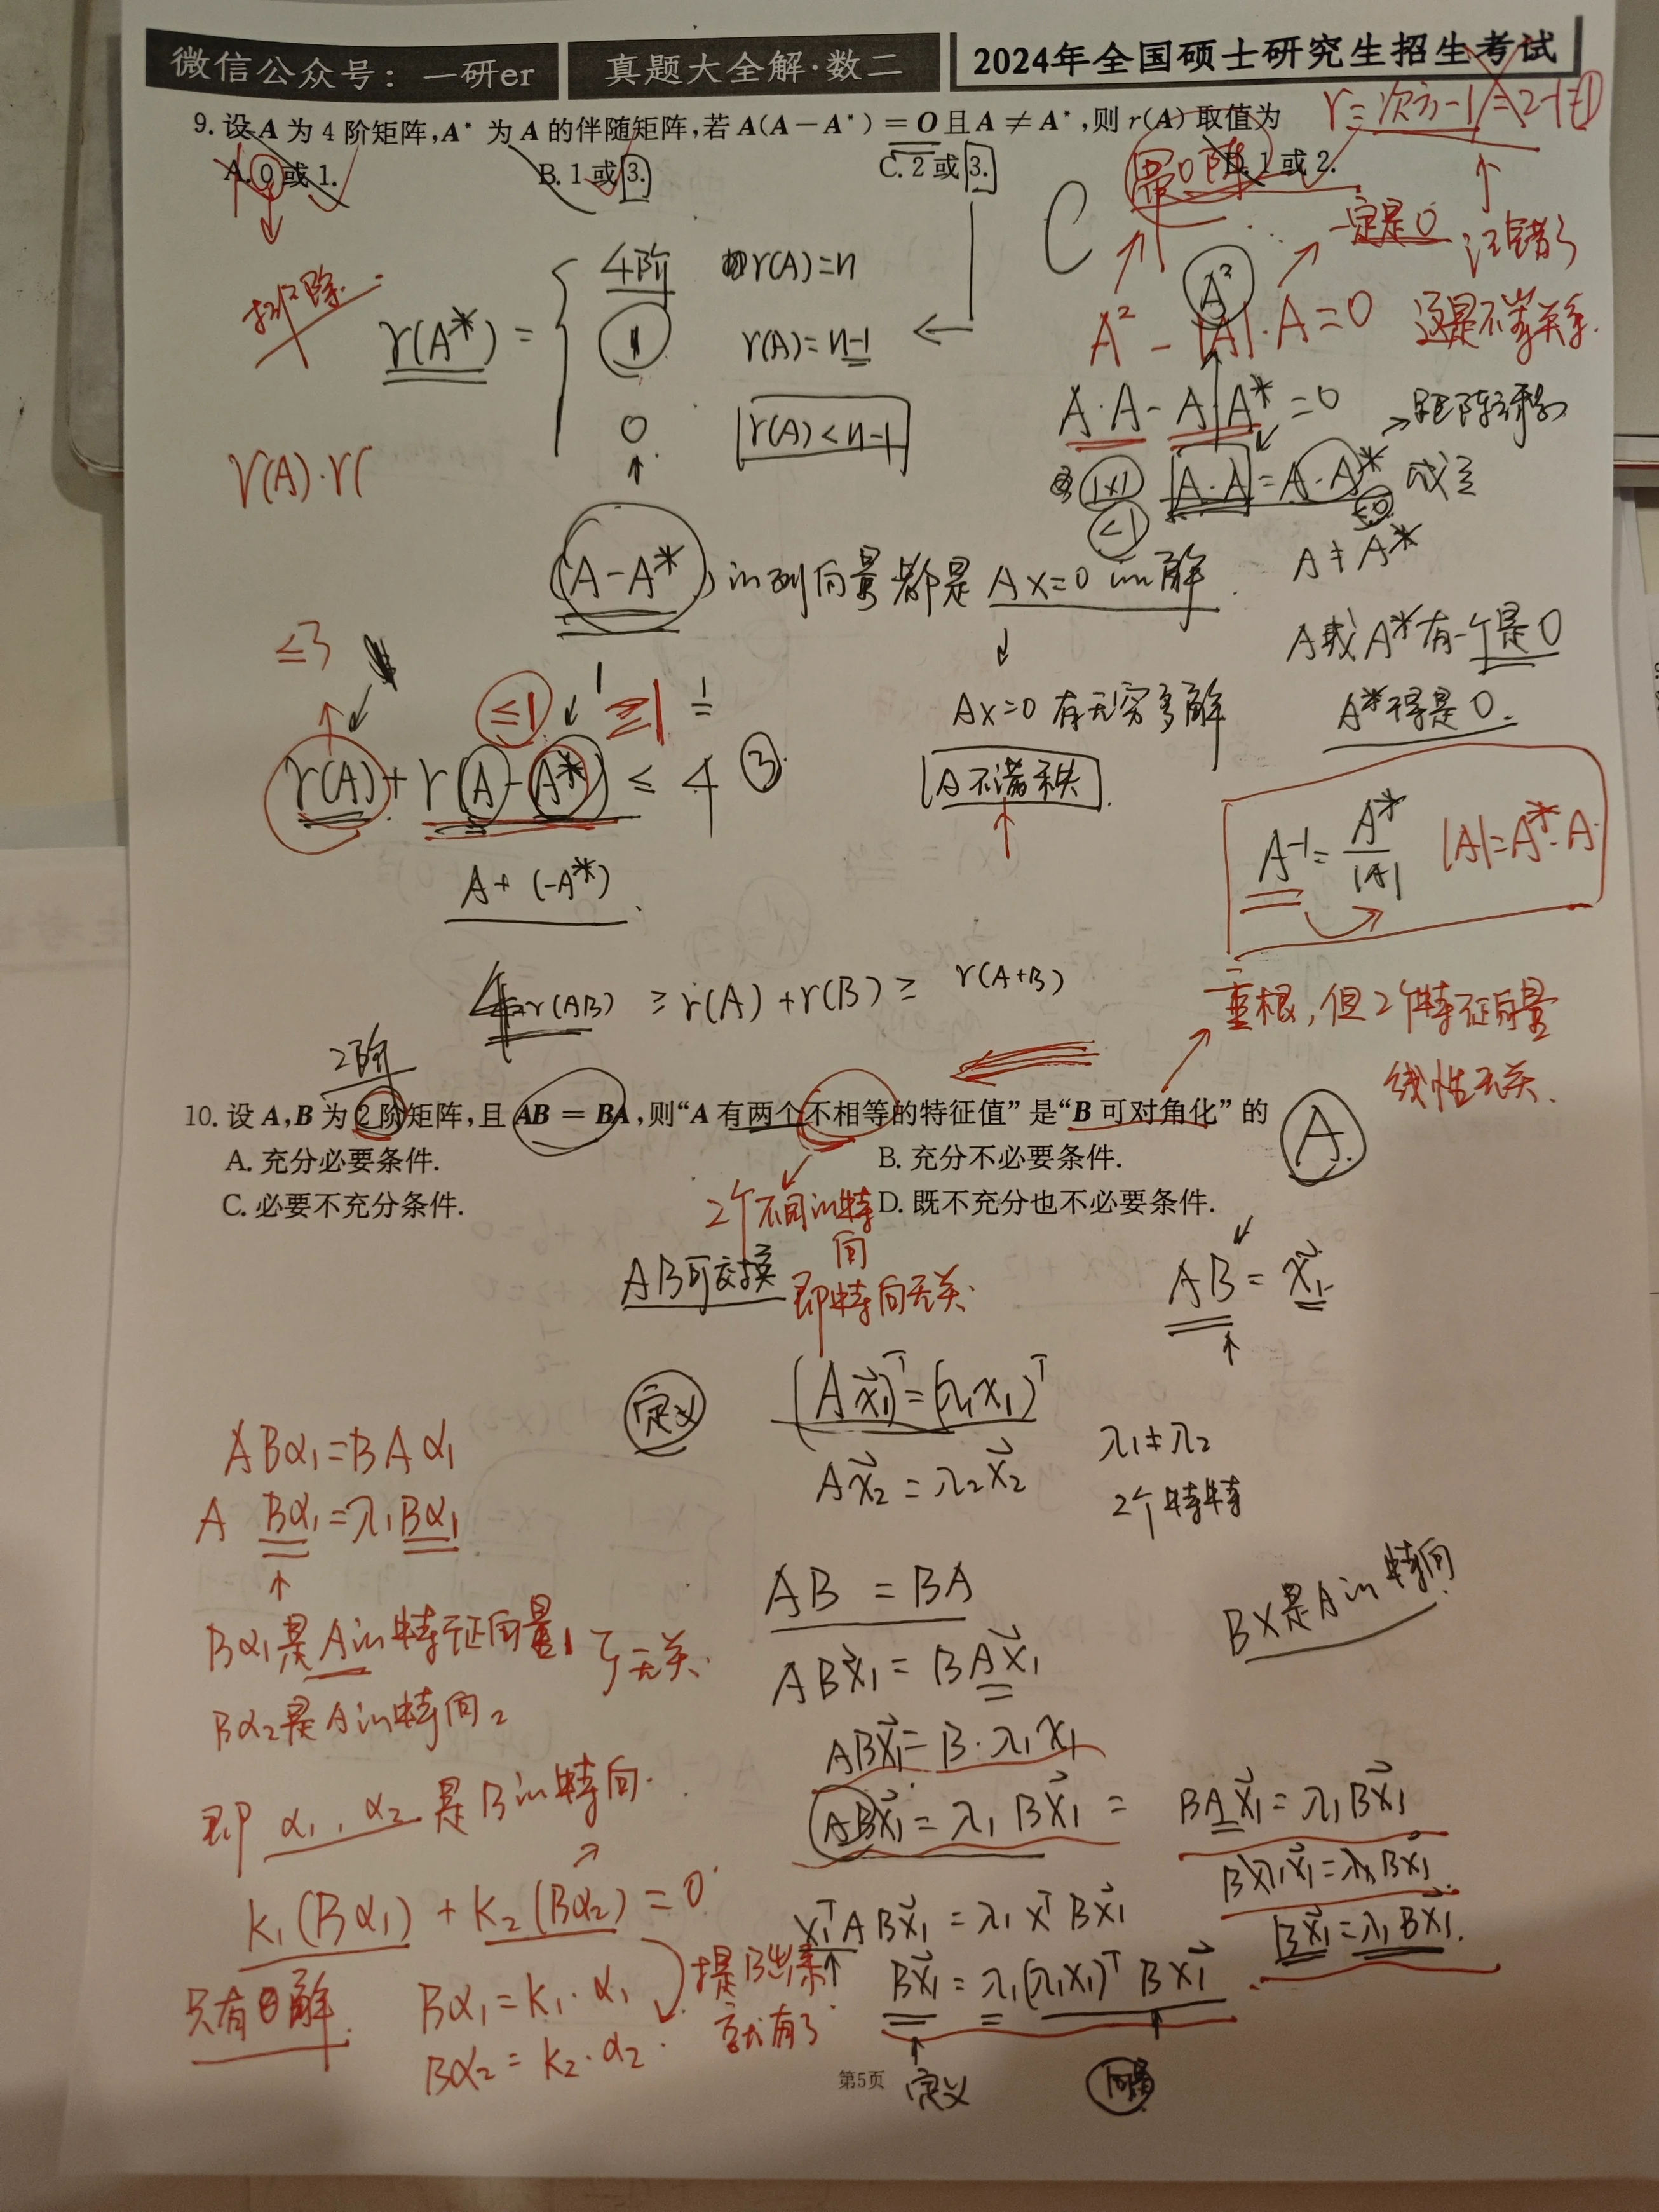 微信公众号：一研er
真题大全解·数二
2024年全国硕士研究生招生考试
r=次方-1=2-1=1
9. 设 A 为 4 阶矩阵,A* 为 A 的伴随矩阵,若 A(A－A*)＝O 且 A ≠ A*,则 r(A) 取值为
A. 0 或 1.
B. 1 或 3.
C. 2 或 3.
D. 1 或 2.
C
幂0阵
一定是0
记错了
这是不等关系.
排除
r(A*) =
4阶 r(A)=n
1 r(A)=n-1
0 r(A)<n-1
A²
A² - |A|·A=0
A·A - A·A*=0
1×1 A·A = A·A* 成立
<1
A≠A*
r(A)·r(
(A-A*) 的列向量都是 Ax=0 的解.
A或A*有一个是0
A*得是0.
Ax=0 有无穷多解
A不满秩.
≤3
≤1 ≥1
r(A)+r(A-A*) ≤ 4 ③
A+(-A*).
A⁻¹=A*/|A| |A|=A*·A
4 r(AB) ≥ r(A)+r(B) ≥ r(A+B)
二重根,但2个特征向量
线性无关.
2阶
10. 设 A,B 为 2 阶矩阵,且 AB ＝ BA,则“A 有两个不相等的特征值”是“B 可对角化”的
A.
A. 充分必要条件.
B. 充分不必要条件.
C. 必要不充分条件.
D. 既不充分也不必要条件.
2个不同的特
向
即特向无关.
AB可交换
AB = x₁
定义
(Ax₁)ᵀ=(λ₁x₁)ᵀ
Ax₂ = λ₂x₂
λ₁≠λ₂
2个特特
ABα₁=BAα₁
A Bα₁=λ₁Bα₁
Bα₁是A的特征向量1 无关.
Bα₂是A的特向2
即 α₁,α₂ 是B的特向.
k₁(Bα₁) + k₂(Bα₂) = 0
只有0解.
Bα₁=k₁·α₁
Bα₂=k₂·α₂.
提B出来
就有了
AB = BA
ABx₁ = BAx₁
ABx₁ = B·λ₁x₁
ABx₁ = λ₁Bx₁ =
BX是A的特向
BAx₁ = λ₁Bx₁
Bλ₁x₁=λ₁Bx₁
Bx₁=λ₁Bx₁.
x₁ᵀABx₁ = λ₁xᵀBx₁
Bx₁ = λ₁(λ₁x₁)ᵀBx₁
定义
第5页